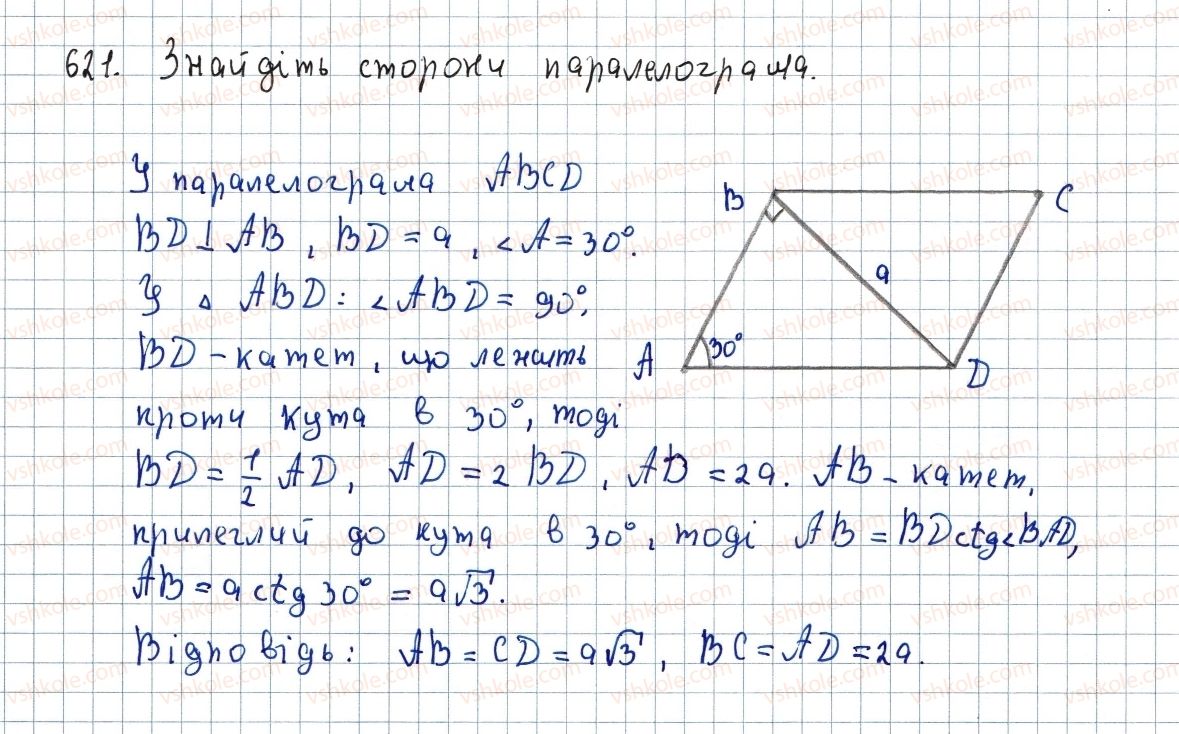 621. Знайдіть сторони паралелограма.
У паралелограма ABCD
BD⊥AB, BD = a, ∠A = 30°.
У △ ABD: ∠ABD = 90°,
BD - катет, що лежить
проти кута в 30°, тоді
BD = 1/2 AD, AD = 2 BD, AD = 2a. AB - катет,
прилеглий до кута в 30°, тоді AB = BD ctg∠BAD,
AB = a ctg 30° = a√3.
Відповідь: AB = CD = a√3, BC = AD = 2a.
B
C
a
A
30°
D